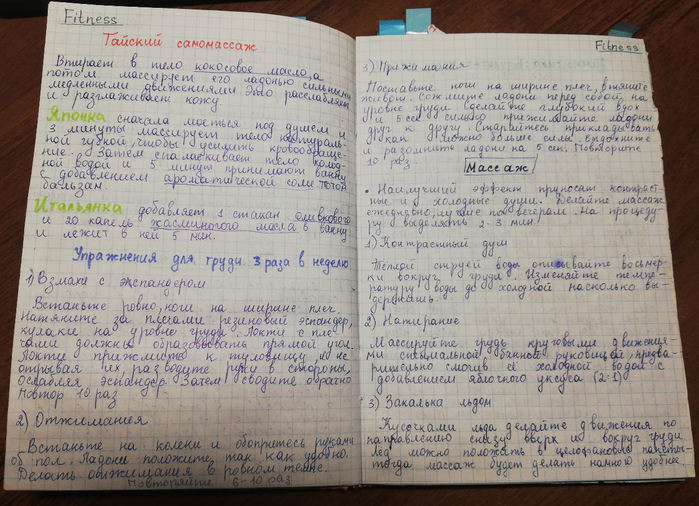 Fitness
Тайский самомассаж
Втирает в тело кокосовое масло, а
потом массирует его ладонью сильными
медленными движениями. Это расслабляет
и разглаживает кожу.
Японка сначала моеться под душем и
3 минуты массирует тело натураль-
ной губкой, чтобы усилить кровообраще-
ние. Затем споласкивает тело холод-
ной водой и 5 минут принимают ванну
с добавлением ароматической соли
бальзам.
Итальянка добавляет 1 стакан оливкового
и 20 капель жасминого масла в ванну
и лежит в ней 5 мин.
Упражнения для груди 3 раза в неделю
1) Взмахи с экспандером
Встаньте ровно, ноги на ширине плеч
Натяните за плечами резиновый эспандер,
кулаки на уровне груди. Локти с пле-
чами должны образовывать прямой угол.
Локти прижмите к туловищу и не
отрывая их, разведите руки в стороны,
ослабляя эспандер. Затем сводите обратно
Повтор 10 раз
2) Отжимания
Встаньте на колени и обопритесь руками
об пол. Ладони положите так как удобно.
Делать отжимания в ровном темпе.
Повторяйте 6-10 раз
Fitness
3) Прижимания
Поставьте ноги на ширине плеч, втяните
живот. Сожмите ладони перед собой на
уровне груди. Сделайте глубокий вдох
и 5 сек сильно прижимайте ладони
друг к другу. Старайтесь прикладывать
как можно больше силы. Выдохните
и разомкните ладони на 5 сек. Повторите
10 раз.
Массаж
• Наилучший эффект приносят контраст-
ные и холодные души. Делайте массаж
ежедневно, лучше по вечерам. На процеду-
ру выделять 2-3 мин.
1) Контрастный душ
Тёплой струёй воды описывайте восьмёр-
ки вокруг груди. Изменяйте темпе-
ратуру воды до холодной насколько вы-
держишь.
2) Натирание
Массируйте грудь круговыми движения-
ми специальной банной руковицей, предва-
рительно смочив её холодной водой с
добавлением яблочного уксуса (2:1)
3) Закалька льдом
Кусочками льда делайте движения по
направлению снизу вверх и вокруг груди
Лёд можно положить в целофановые пакеты-
тогда массаж будет делать намного удобнее